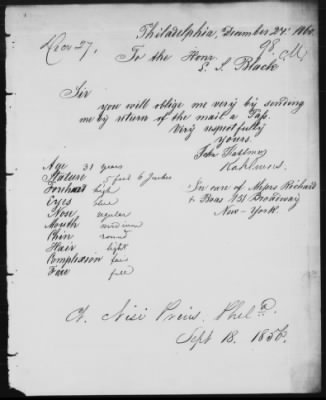 Philadelphia, December 24th 1860.
Dec 27,
98. M
To the Honr.
J. S. Black
Sir
you will oblige me very by sending
me by return of the mail a Pass.
Very respectfully
yours.
In care of Messrs Richard
& Boas 181 Broadway
New-York.
Age 31 years
Stature 5 feet 6 Inches
Forehead high
Eyes blue
Nose regular
Mouth medium
Chin round
Hair light
Complexion fair
Face full
Ct. Nisi Prius, Phila.
Sept 18. 1856.